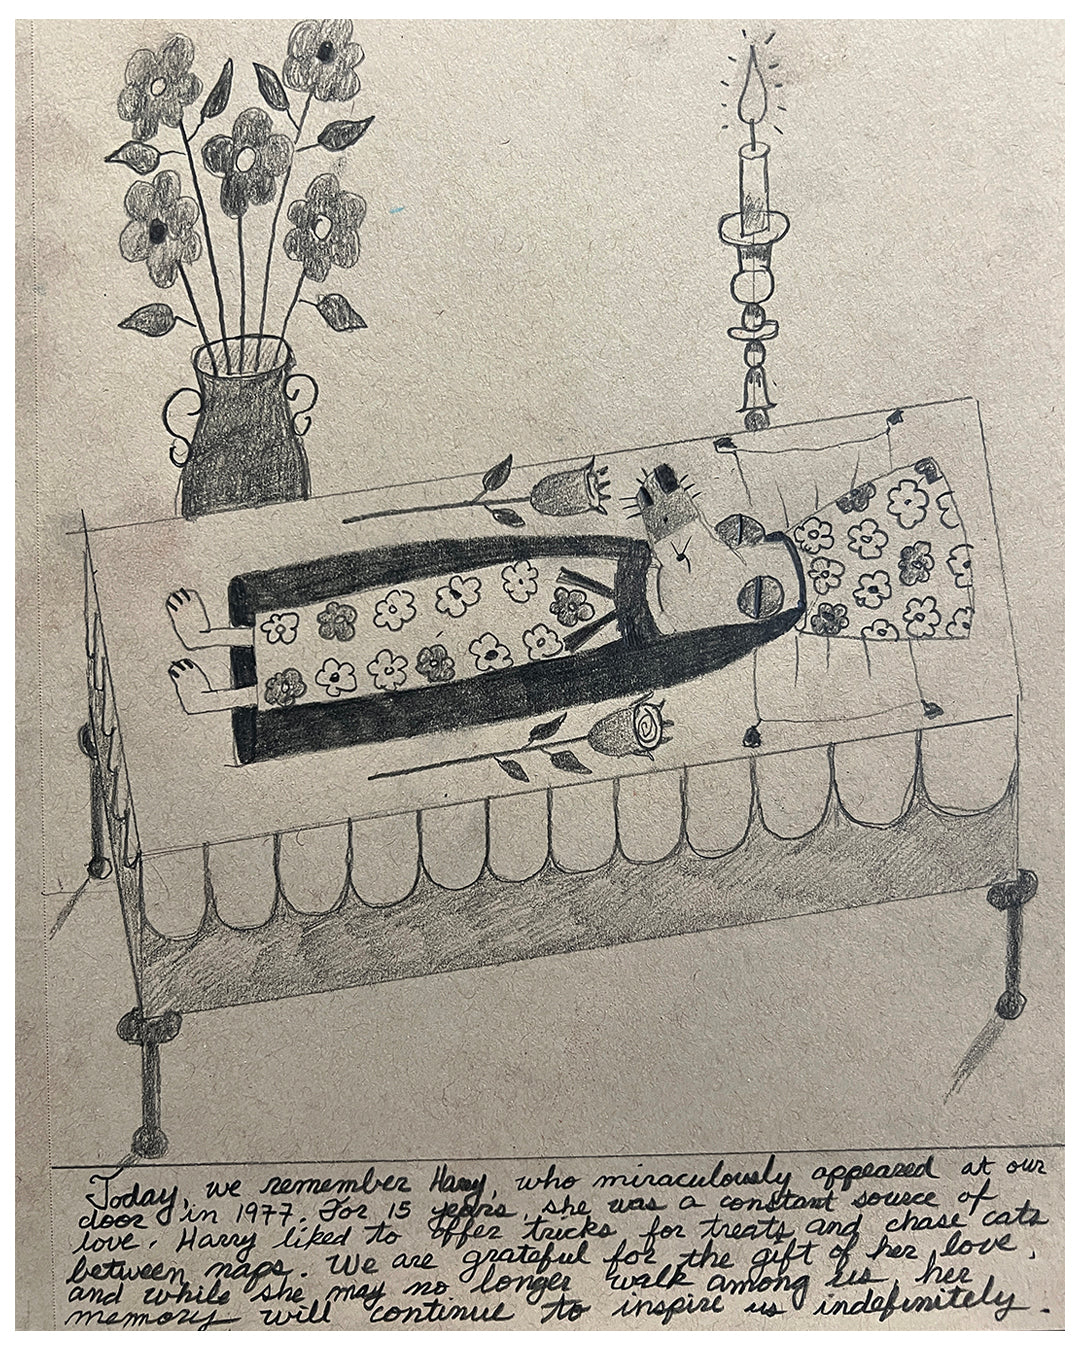 Today, we remember Harry, who miraculously appeared at our
door in 1977. For 15 years, she was a constant source of
love. Harry liked to offer tricks for treats and chase cats
between naps. We are grateful for the gift of her love,
and while she may no longer walk among us, her
memory will continue to inspire us indefinitely.